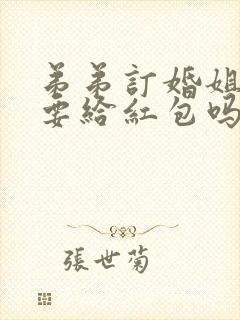 弟弟訂婚姐
要給紅包嗎
張世菊